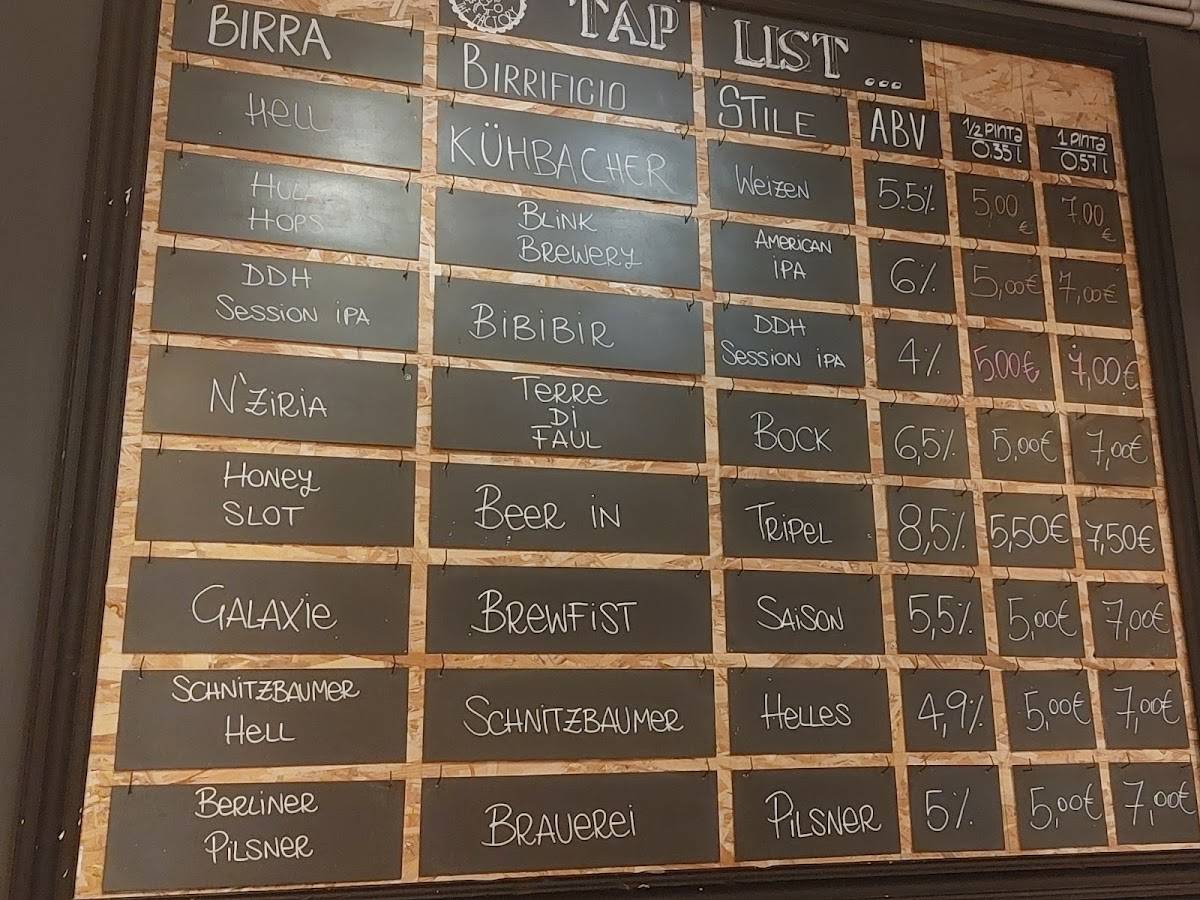 TAP LIST ...
BIRRA BIRRIFICIO STILE ABV 1/2 PINTA 0.35l 1 PINTA 0.57l
Hell KÜHBACHER Weizen 5.5% 5,00€ 7,00€
HULA HOPS BLINK BREWERY AMERICAN iPA 6% 5,00€ 7,00€
DDH Session iPA BiBiBiR DDH Session iPA 4% 5,00€ 7,00€
N'ZiRiA TERRE Di FAUL BOCK 6,5% 5,00€ 7,00€
HONEY SLOT BEER iN TRiPEL 8,5% 5,50€ 7,50€
GALAXiE BREWFiST SAiSON 5,5% 5,00€ 7,00€
SCHNiTZBAUMER HELL SCHNiTZBAUMER HELLES 4,9% 5,00€ 7,00€
BERLiNER PiLSNER BRAUEREi PiLSNER 5% 5,00€ 7,00€